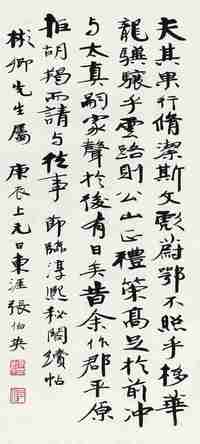 夫其果行脩潔斯文彪蔚鄂不照乎移華
龍驥驤乎雲路則公山正禮策高足於前沖
与太真嗣家聲於後有日矣昔余作郡平原
拒胡羯而請与從事 節臨淳熙秘閣續帖
彬卿先生屬 庚辰上元日東涯張伯英